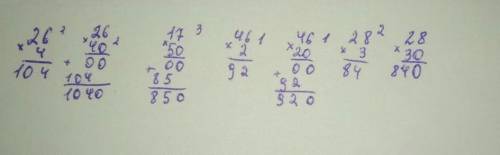 26 ²
× 4
104
26
× 40 ²
+ 00
104
1040
17 ³
× 50
+ 00
85
850
× 46 ¹
2
92
× 46 ¹
20
+ 00
92
920
× 28 ²
3
84
× 28
30
840